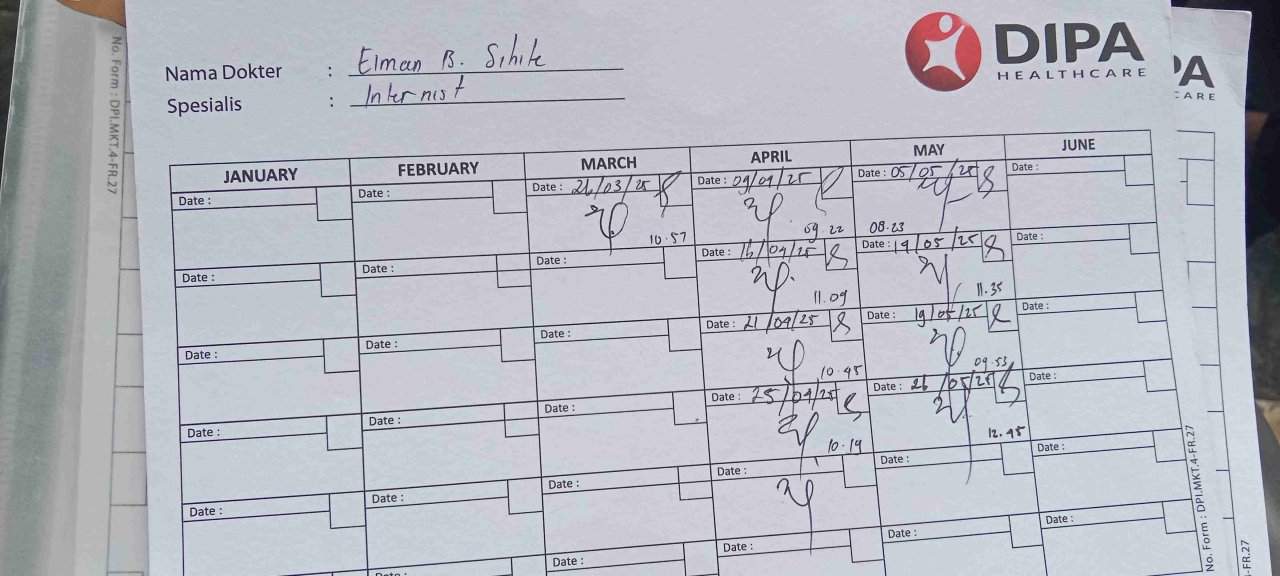 DIPA
HEALTHCARE
Nama Dokter : Elman B. Sihite
Spesialis : Internist
JANUARY FEBRUARY MARCH APRIL MAY JUNE
Date : Date : Date : 26/03/25 Date : 09/04/25 Date : 05/05/25 Date :
10.57 09.22 08.23
Date : Date : Date : Date : 16/04/25 Date : 14/05/25 Date :
11.09 11.35
Date : Date : Date : Date : 21/04/25 Date : 19/05/25 Date :
10.45 09.53
Date : Date : Date : Date : 25/04/25 Date : 26/05/25 Date :
10.19 12.45
Date : Date : Date : Date : Date : Date :
Date : Date : Date : Date : Date :
No. Form : DPI.MKT.4-FR.27
No. Form : DPI.MKT.4-FR.27
PA
CARE
4-FR.27